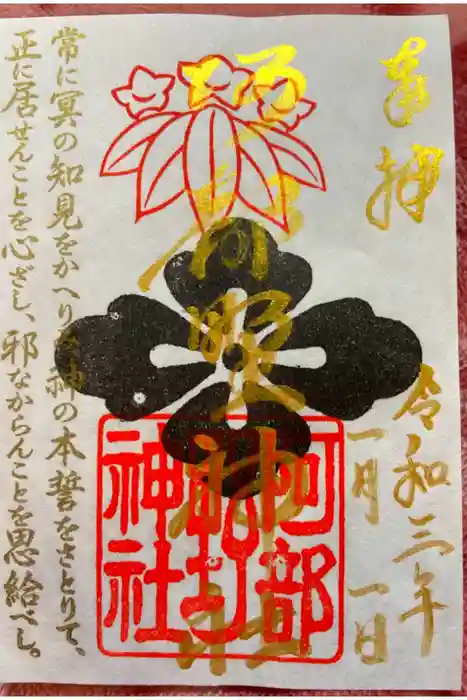 奉拝
令和三年
一月 一日
阿部
野
神社
常に冥の知見をかへりみ、神の本誓をさとりて、
正に居せんことを心ざし、邪なからんことを思給べし。